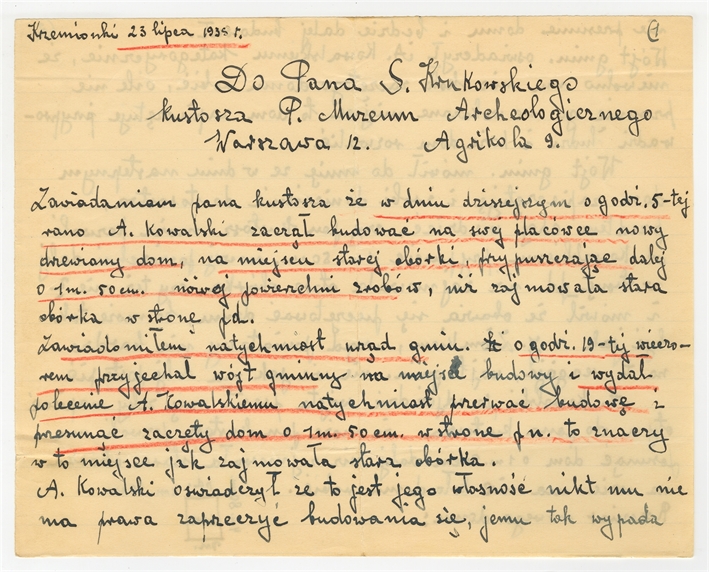 Krzemionki 23 lipca 1935 r.
1
Do Pana S. Krukowskiego
kustosza P. Muzeum Archeologicznego
Warszawa 12. Agrikola 9.
Zawiadamiam pana kustosza że w dniu dzisiejszym o godzi. 5-tej
rano A. Kowalski zaczął budować na swej placówce nowy
drzewiany dom, na miejscu starej obórki, przypuszczając dalej
o 1m. 50cm. nowej powierzchni zrobów, niż zajmowała stara
obórka w stronę pd.
Zawiadomiłem natychmiast urząd gmin. o godzi. 19-tej wieczo-
rem przyjechał wójt gminny na miejsce budowy i wydał
polecenie A. Kowalskiemu natychmiast przerwać budowę i
przesunąć zaczęty dom o 1m. 50cm. w stronę pn. to znaczy
w to miejsce jak zajmowała stara obórka.
A. Kowalski oswiadczył ze to jest jego własność nikt mu nie
ma prawa zaprzeczyć budowania się, jemu tak wypada